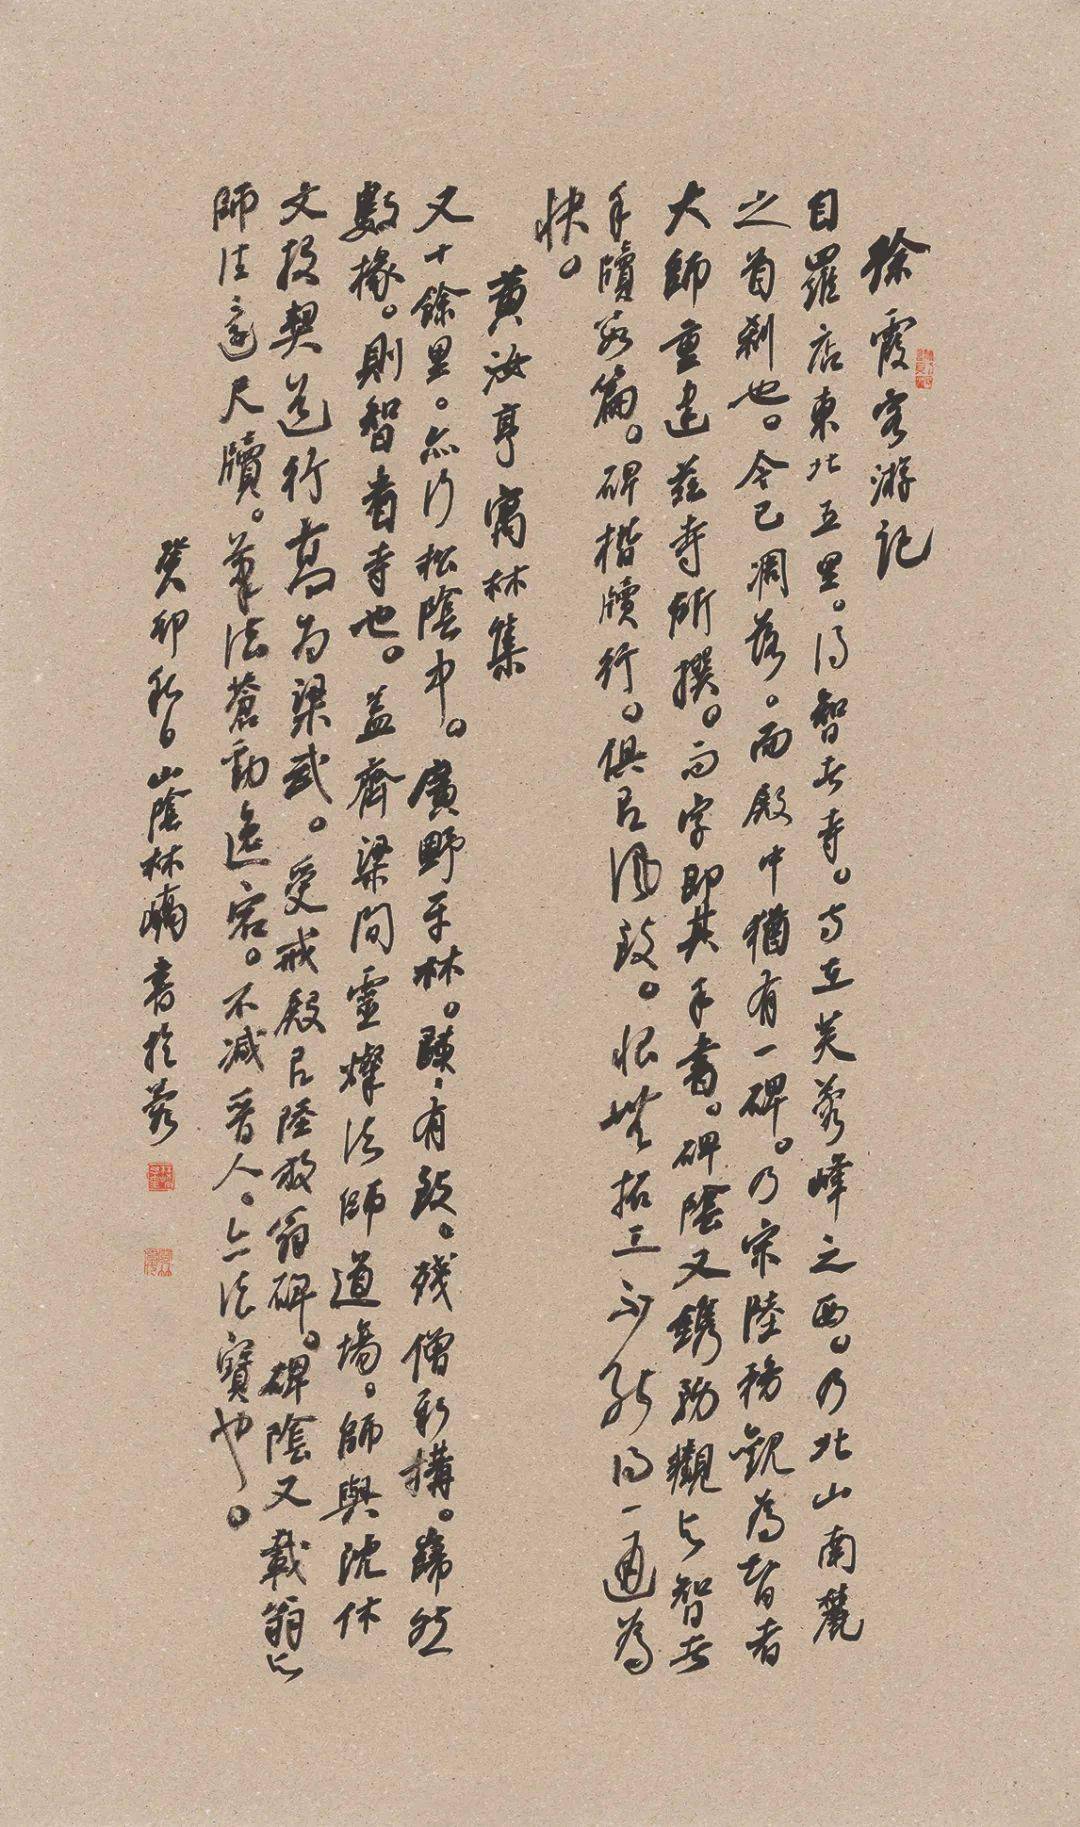 徐霞客游记
自羅店東北五里。得智者寺。寺在芙蓉峰之西。乃北山南麓
之首剎也。今已凋落。而殿中猶有一碑。乃宋陸務觀為智者
大師重建茲寺所撰。而字即其手書。碑陰又鐫務觀與智者
手牘數篇。碑楷牘行。俱有風致。恨無拓工不能得一通為
快。
黃汝亨寓林集
又十餘里。亦行松陰中。廣野平林。踈〻有致。殘僧新構。歸然
數椽。則智者寺也。蓋齊梁間靈燦法師道場。師與沈休
文投契道行高為梁武。受戒殿有陸放翁碑。碑陰又載翁與
師往還尺牘。筆法蒼勁逸宕。不減晉人。亦法寶也。
癸卯秋日山陰林書於蓉